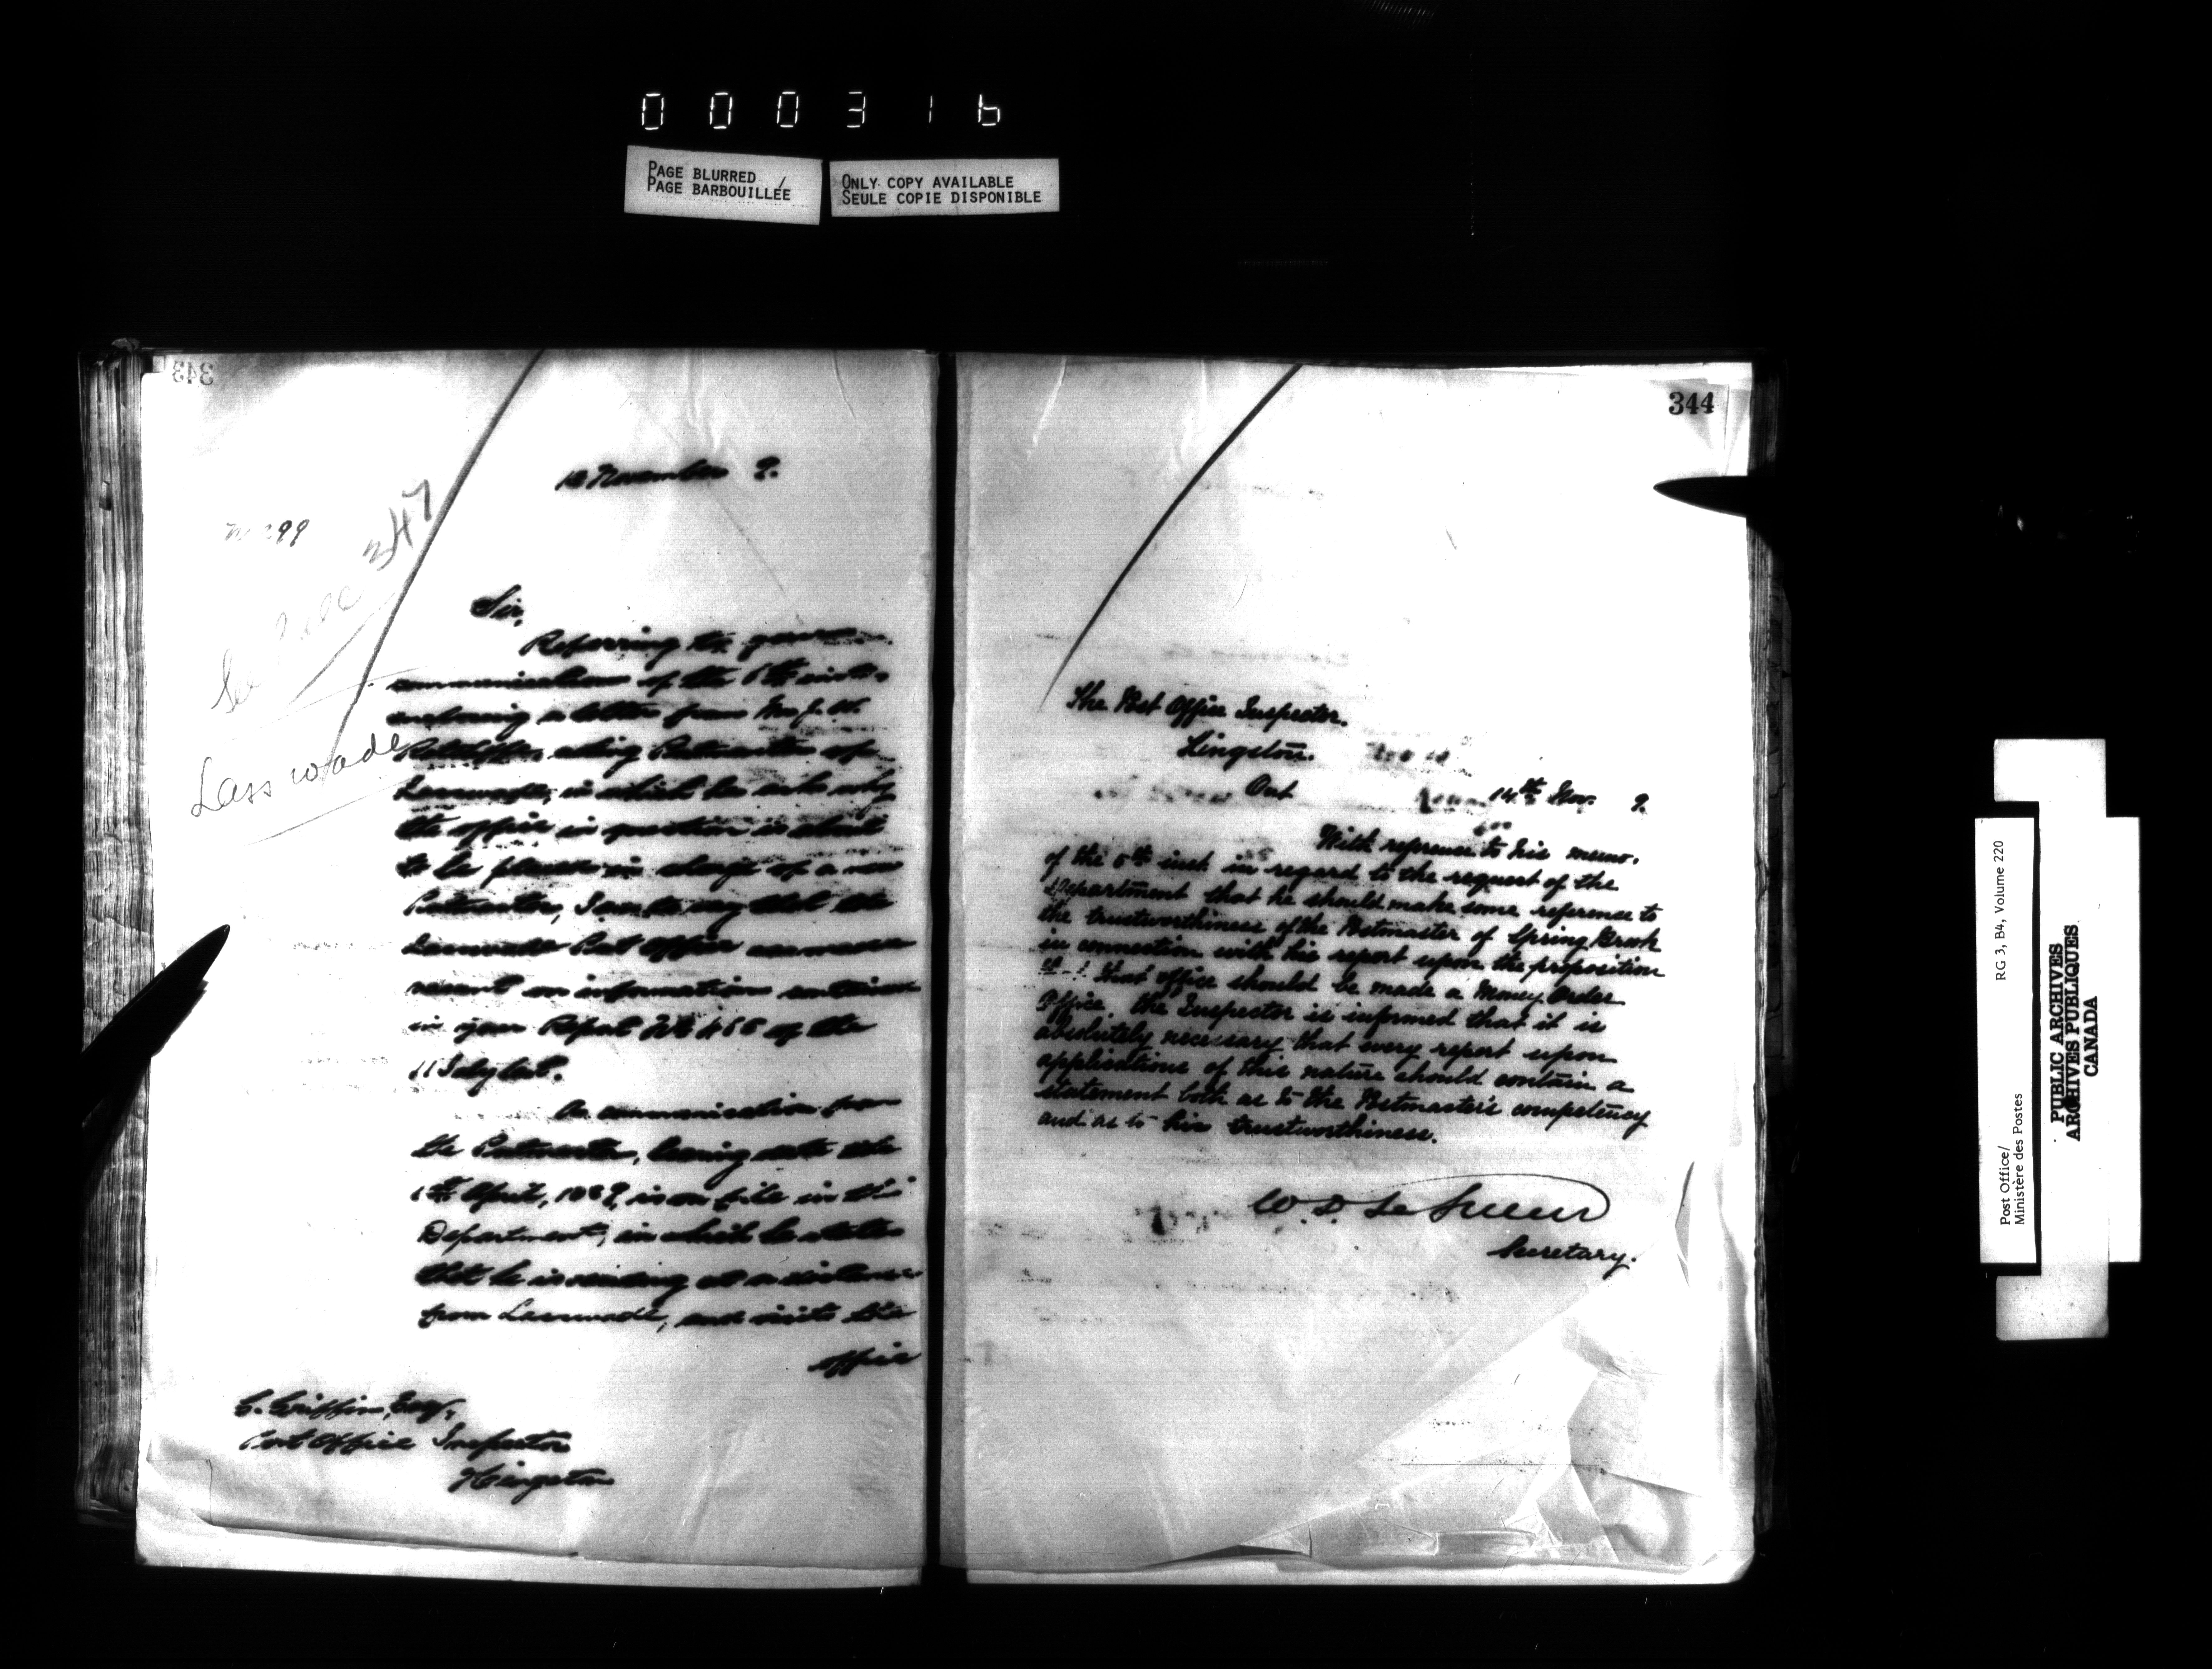 000316
PAGE BLURRED
PAGE BARBOUILLÉE
ONLY COPY AVAILABLE
SEULE COPIE DISPONIBLE
343
November 9.
299
347
Lasswade
Sir,
Referring to your
communication of the 6th inst.
enclosing a letter from Mr J. W.
acting Postmaster of
Lasswade, in which he asks why
the office in question is about
to be placed in charge of a new
Postmaster, I am to say that the
Lasswade Post Office was made
vacant on information contained
in your Report No 466 of the
11 July last.
A communication from
the Postmaster, bearing date the
6th April, 1889, is on file in this
Department, in which he states
that he is residing at a distance
from Lasswade, and visits the
office
G. Griffin, Esq.,
Post Office Inspector
Kingston
344
The Post Office Inspector.
Kingston.
Ont
14th Nov. 9.
With reference to his memo.
of the 6th inst in regard to the request of the
Department that he should make some reference to
the trustworthiness of the Postmaster of Spring Brook
in connection with his report upon the proposition
that office should be made a Money Order
Office, the Inspector is informed that it is
absolutely necessary that every report upon
applications of this nature should contain a
statement both as to the Postmaster's competency
and as to his trustworthiness.
W. D. Le Sueur
Secretary.
Post Office/
Ministère des Postes
RG 3, B4, Volume 220
PUBLIC ARCHIVES
ARCHIVES PUBLIQUES
CANADA